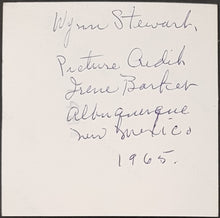 Wynn Stewart.
Picture Credit
Irene Barker
Albuquerque
New Mexico
1965.